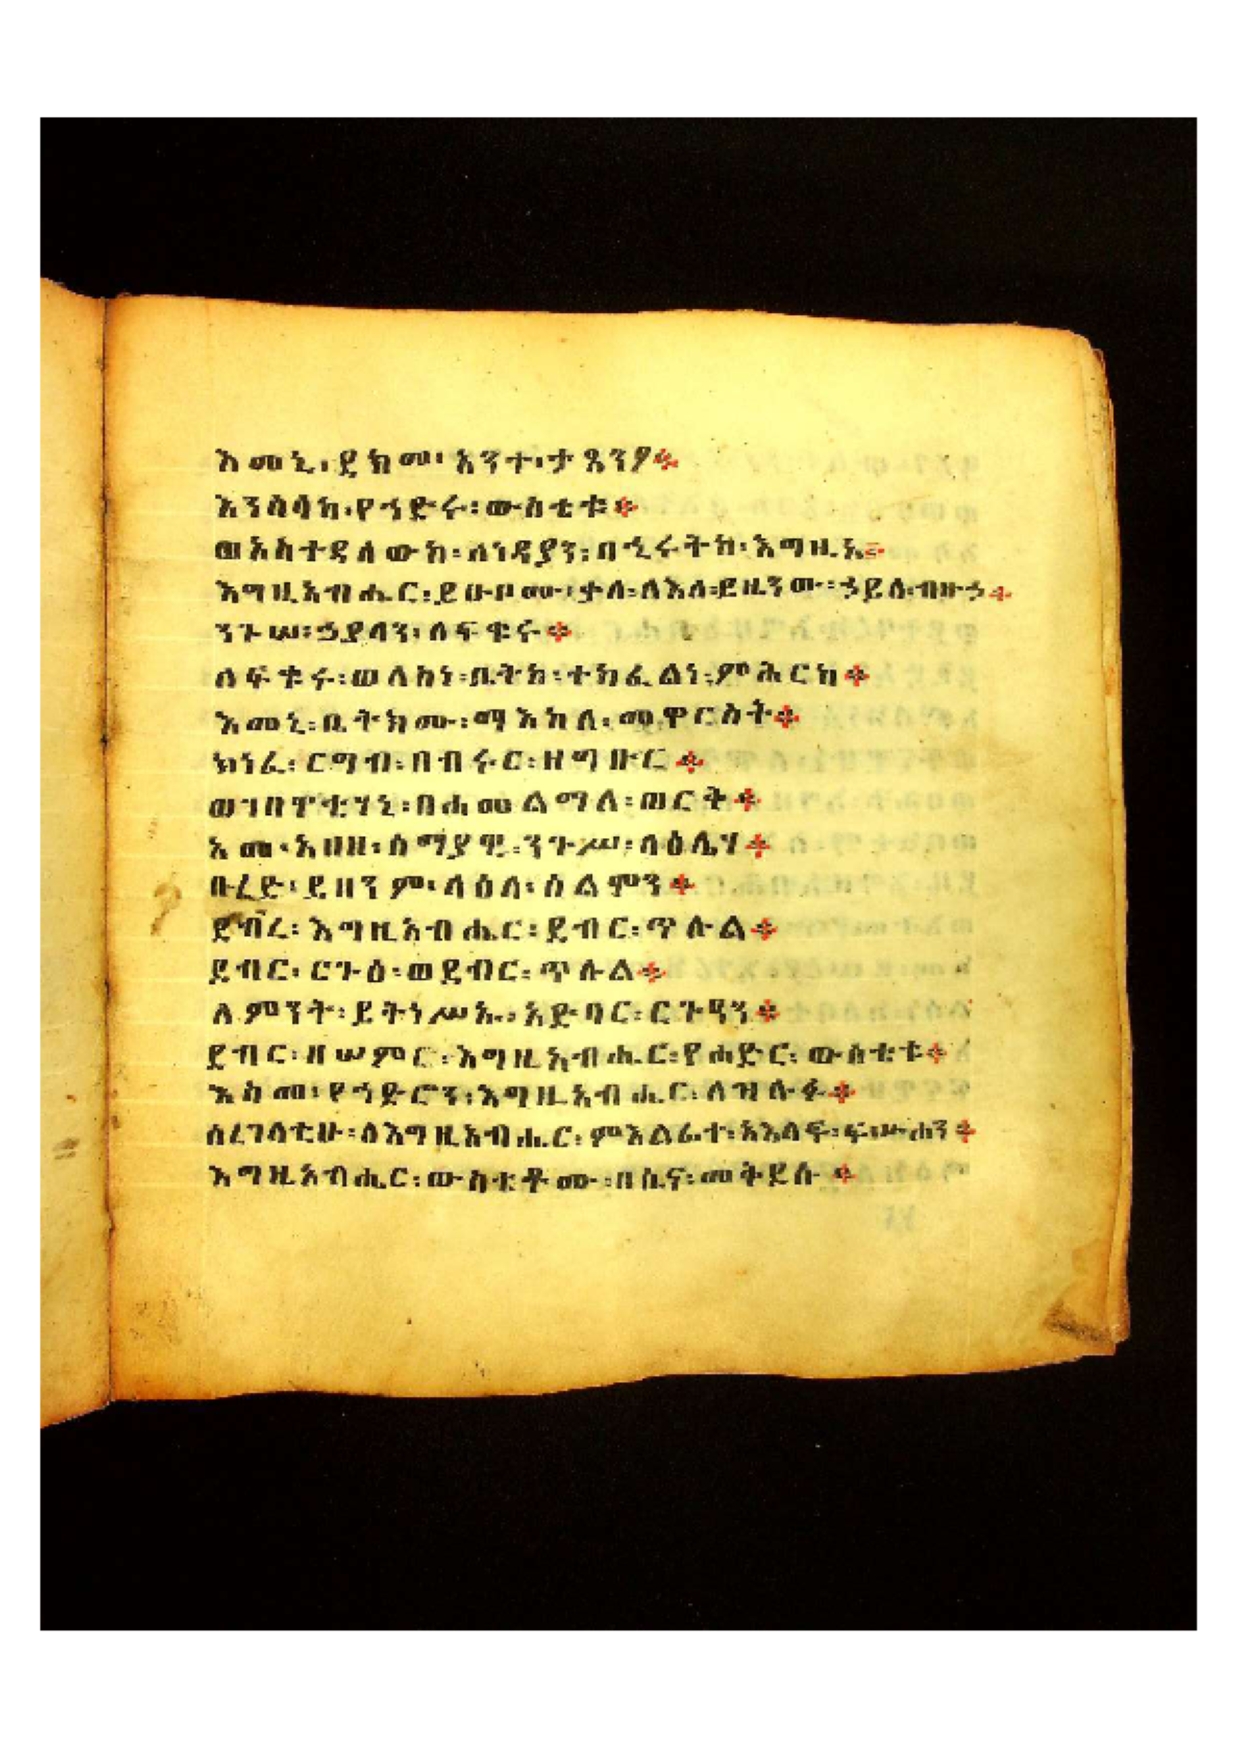 እመኒ፡ ደክመ፡ አንተ፡ ታጸንዖ።
እንስሳከ፡ የኀድሩ፡ ውስቴቱ።
ወአስተዳለውከ፡ ለነዳያን፡ በኂሩትከ፡ እግዚኦ።
እግዚአብሔር፡ ይሁቦሙ፡ ቃለ፡ ለእለ፡ ይዜንው፡ ኃይለ፡ ብዙኃ።
ንጉሠ፡ ኃያላን፡ ለፍቁሩ።
ለፍቁሩ፡ ወለስነ፡ ቤትከ፡ ተካፈልነ፡ ምሕርካ።
እመኒ፡ ቤትክሙ፡ ማእከለ፡ መዋርስት።
ክነፈ፡ ርግብ፡ በብሩር፡ ዘግቡር።
ወገበዋቲሃኒ፡ በሐመልማለ፡ ወርቅ።
አመ፡ አዘዘ፡ ሰማያዊ፡ ንጉሥ፡ ላዕሌሃ።
በረድ፡ ይዘንም፡ ላዕለ፡ ሰልሞን።
ደብረ፡ እግዚአብሔር፡ ደብር፡ ጥሉል።
ደብር፡ ርጉዕ፡ ወደብር፡ ጥሉል።
ለምንት፡ ይትነሥኡ፡ አድባር፡ ርጉዓን።
ደብር፡ ዘሠምሮ፡ እግዚአብሔር፡ የሐድር፡ ውስቴቱ።
እስመ፡ የኀድሮን፡ እግዚአብሔር፡ ለዝሉፉ።
ሰረገላቲሁ፡ ለእግዚአብሔር፡ ምእልፊተ፡ አእላፍ፡ ፍሡሐን።
እግዚአብሔር፡ ውስቴቶሙ፡ በሲና፡ መቅደሱ።